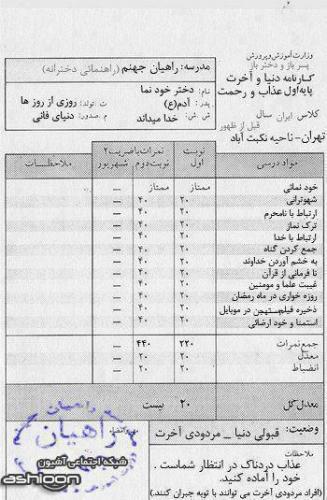 وزارت آموزش و پرورش
پسر باز و دختر باز
کارنامه دنیا و آخرت
پایه اول عذاب و رحمت
کلاس ایران سال
قبل از ظهور
تهران - ناحیه نکبت آباد
مدرسه: راهیان جهنم (راهنمائی دخترانه)
نام: دختر خود نما
پدر: آدم(ع) ت تولد: روزی از روز ها
ش ش: خدا میداند م صدور: دنیای فانی
مواد درسی نوبت اول نمرات با ضریب ۲ نوبت دوم شهریور ملاحظات
خود نمائی ممتاز ممتاز —
شهوترانی ۲۰ ۴۰ —
ارتباط با نامحرم ۲۰ ۴۰ —
ترک نماز ۲۰ ۴۰ —
ارتباط با خدا ۲۰ ۴۰ —
جمع کردن گناه ۲۰ ۴۰ —
به خشم آوردن خداوند ۲۰ ۴۰ —
نا فرمانی از قرآن ۲۰ ۴۰ —
غیبت علما و مومنین ۲۰ ۴۰ —
روزه خواری در ماه رمضان ۲۰ ۴۰ —
ذخیره فیلم مستهجن در موبایل ۲۰ ۴۰ —
استمنا و خود ارضائی ۲۰ ۴۰ —
جمع نمرات ۲۲۰ ۴۴۰ —
معدل ۲۰ ۲۰ —
انضباط ۲۰ ۲۰ —
معدل کل ۲۰ بیست
وضعیت: قبولی دنیا _ مردودی آخرت
ملاحظات
عذاب دردناک در انتظار شماست .
خود را آماده کنید.
(افراد مردودی آخرت می توانند با توبه جبران کنند)
راهیان
راهیان
شبکه اجتماعی آشیون
ashioon